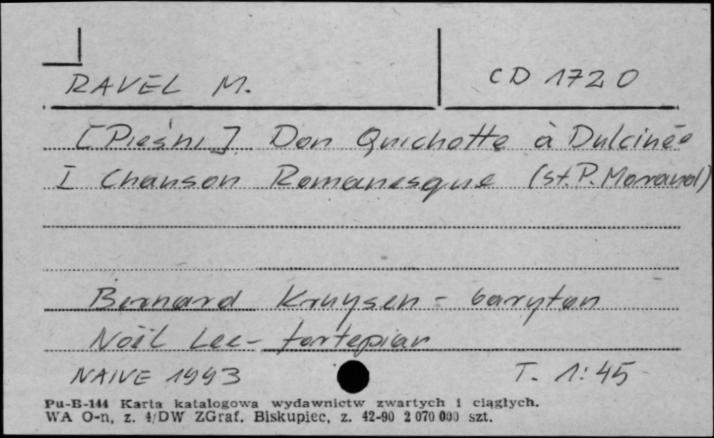 RAVEL M. CD 1720
[Pieśni] Don Quichotte à Dulcinée
I Chanson Romanesque (sł. P. Morand)
Bernard Kruysen - baryton
Noël Lee - fortepian
NAIVE 1993 T. 1:45
Pu-B-144 Karta katalogowa wydawnictw zwartych i ciągłych.
WA O-n, z. 4/DW ZGraf. Biskupiec, z. 42-90 2 070 000 szt.